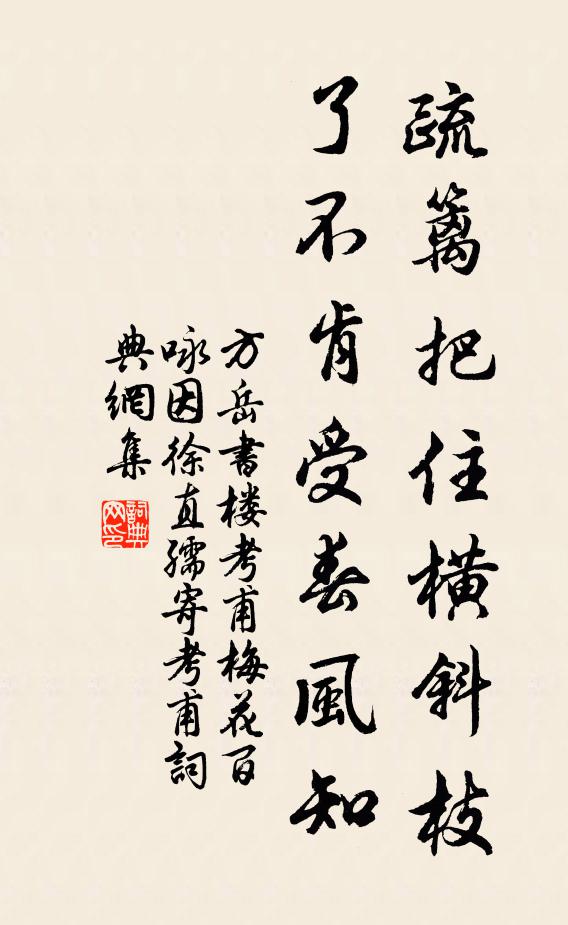 疏篱把住横斜枝
了不肯受春風知
方岳書楼考甫梅花百
咏因徐直孺寄考甫詞
典網集
詞典
网印